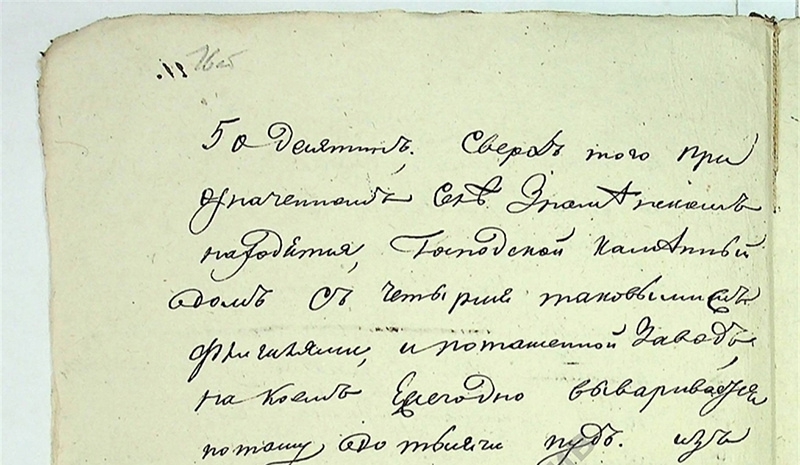 11. 76об
50 Десятинъ, Сверхъ того при
означенномъ Селѣ Знаменскомъ
находится, Господской каменный
домъ съ четырмя таковымижъ
флигилями, и поташенной Заводъ,
на коемъ Ежегодно вываривается
поташу до тысячи пудъ. изъ